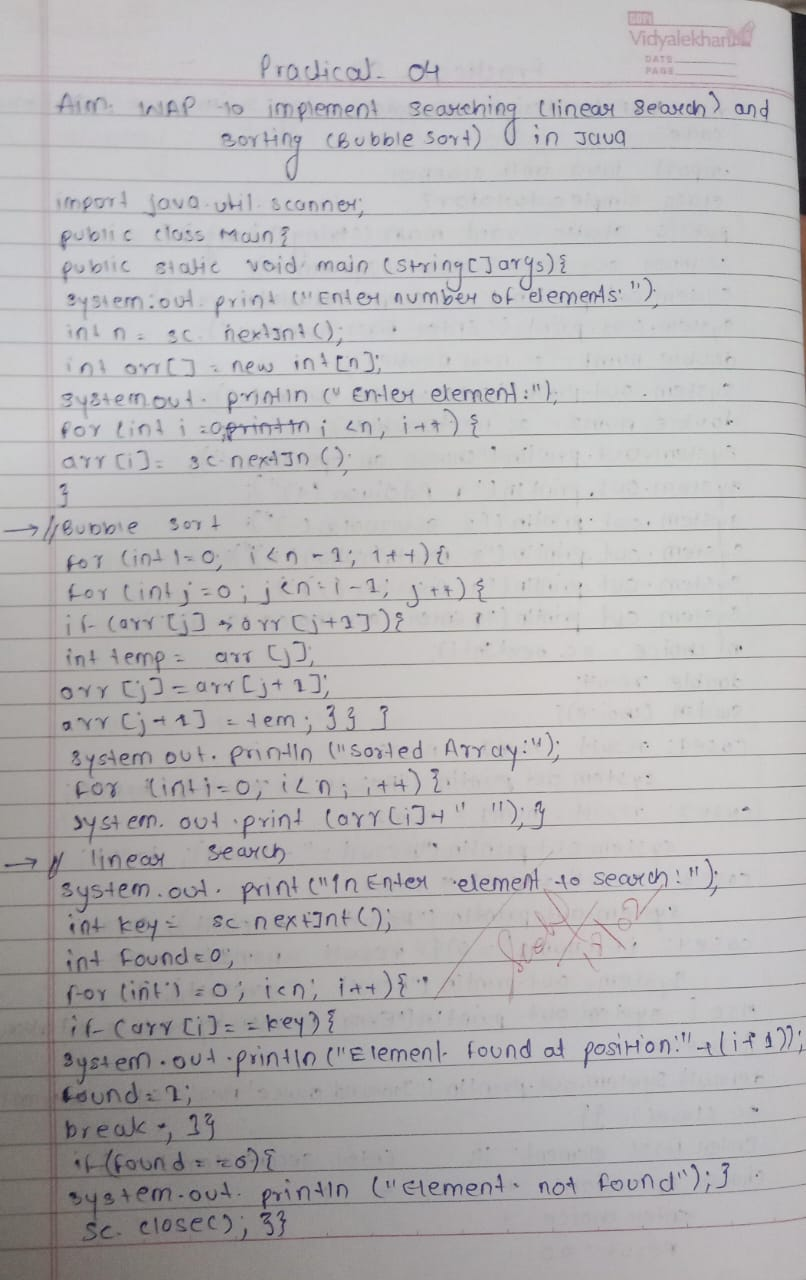 Vidyalekhan
DATE
PAGE
Practical - 04
Aim: WAP to implement searching (linear search) and
sorting (Bubble sort) in Java
import java.util.scanner;
public class Main{
public static void main (string[]args){
system.out.print ("Enter number of elements:");
int n = sc. nextInt ();
int arr[] = new int[n];
system.out.println ("Enter element:");
for (int i =0println; i <n; i++) {
arr [i] = sc.nextIn ();
}
→ //Bubble sort
for (int i=0; i<n-1; i++){
for (int j=0; j<n-i-1; j++) {
if (arr [j] > arr [j+1]){
int temp = arr [j];
arr [j] = arr [j+1];
arr [j+1] = tem; } } }
system out. println ("sorted Array:");
for (int i=0; i<n; i++) {
system. out .print (arr[i]+" "); }
→ // linear search
system.out. print ("\n Enter element to search:");
int key = sc.nextInt();
int found=0;
for (int i = 0; i<n; i++){
if (arr [i] = = key) {
system.out.println ("Element found at position:"+(i+1));
found = 1;
break ; }}
if (found = =0){
system.out. println ("Element not found"); }
sc. close(); }}